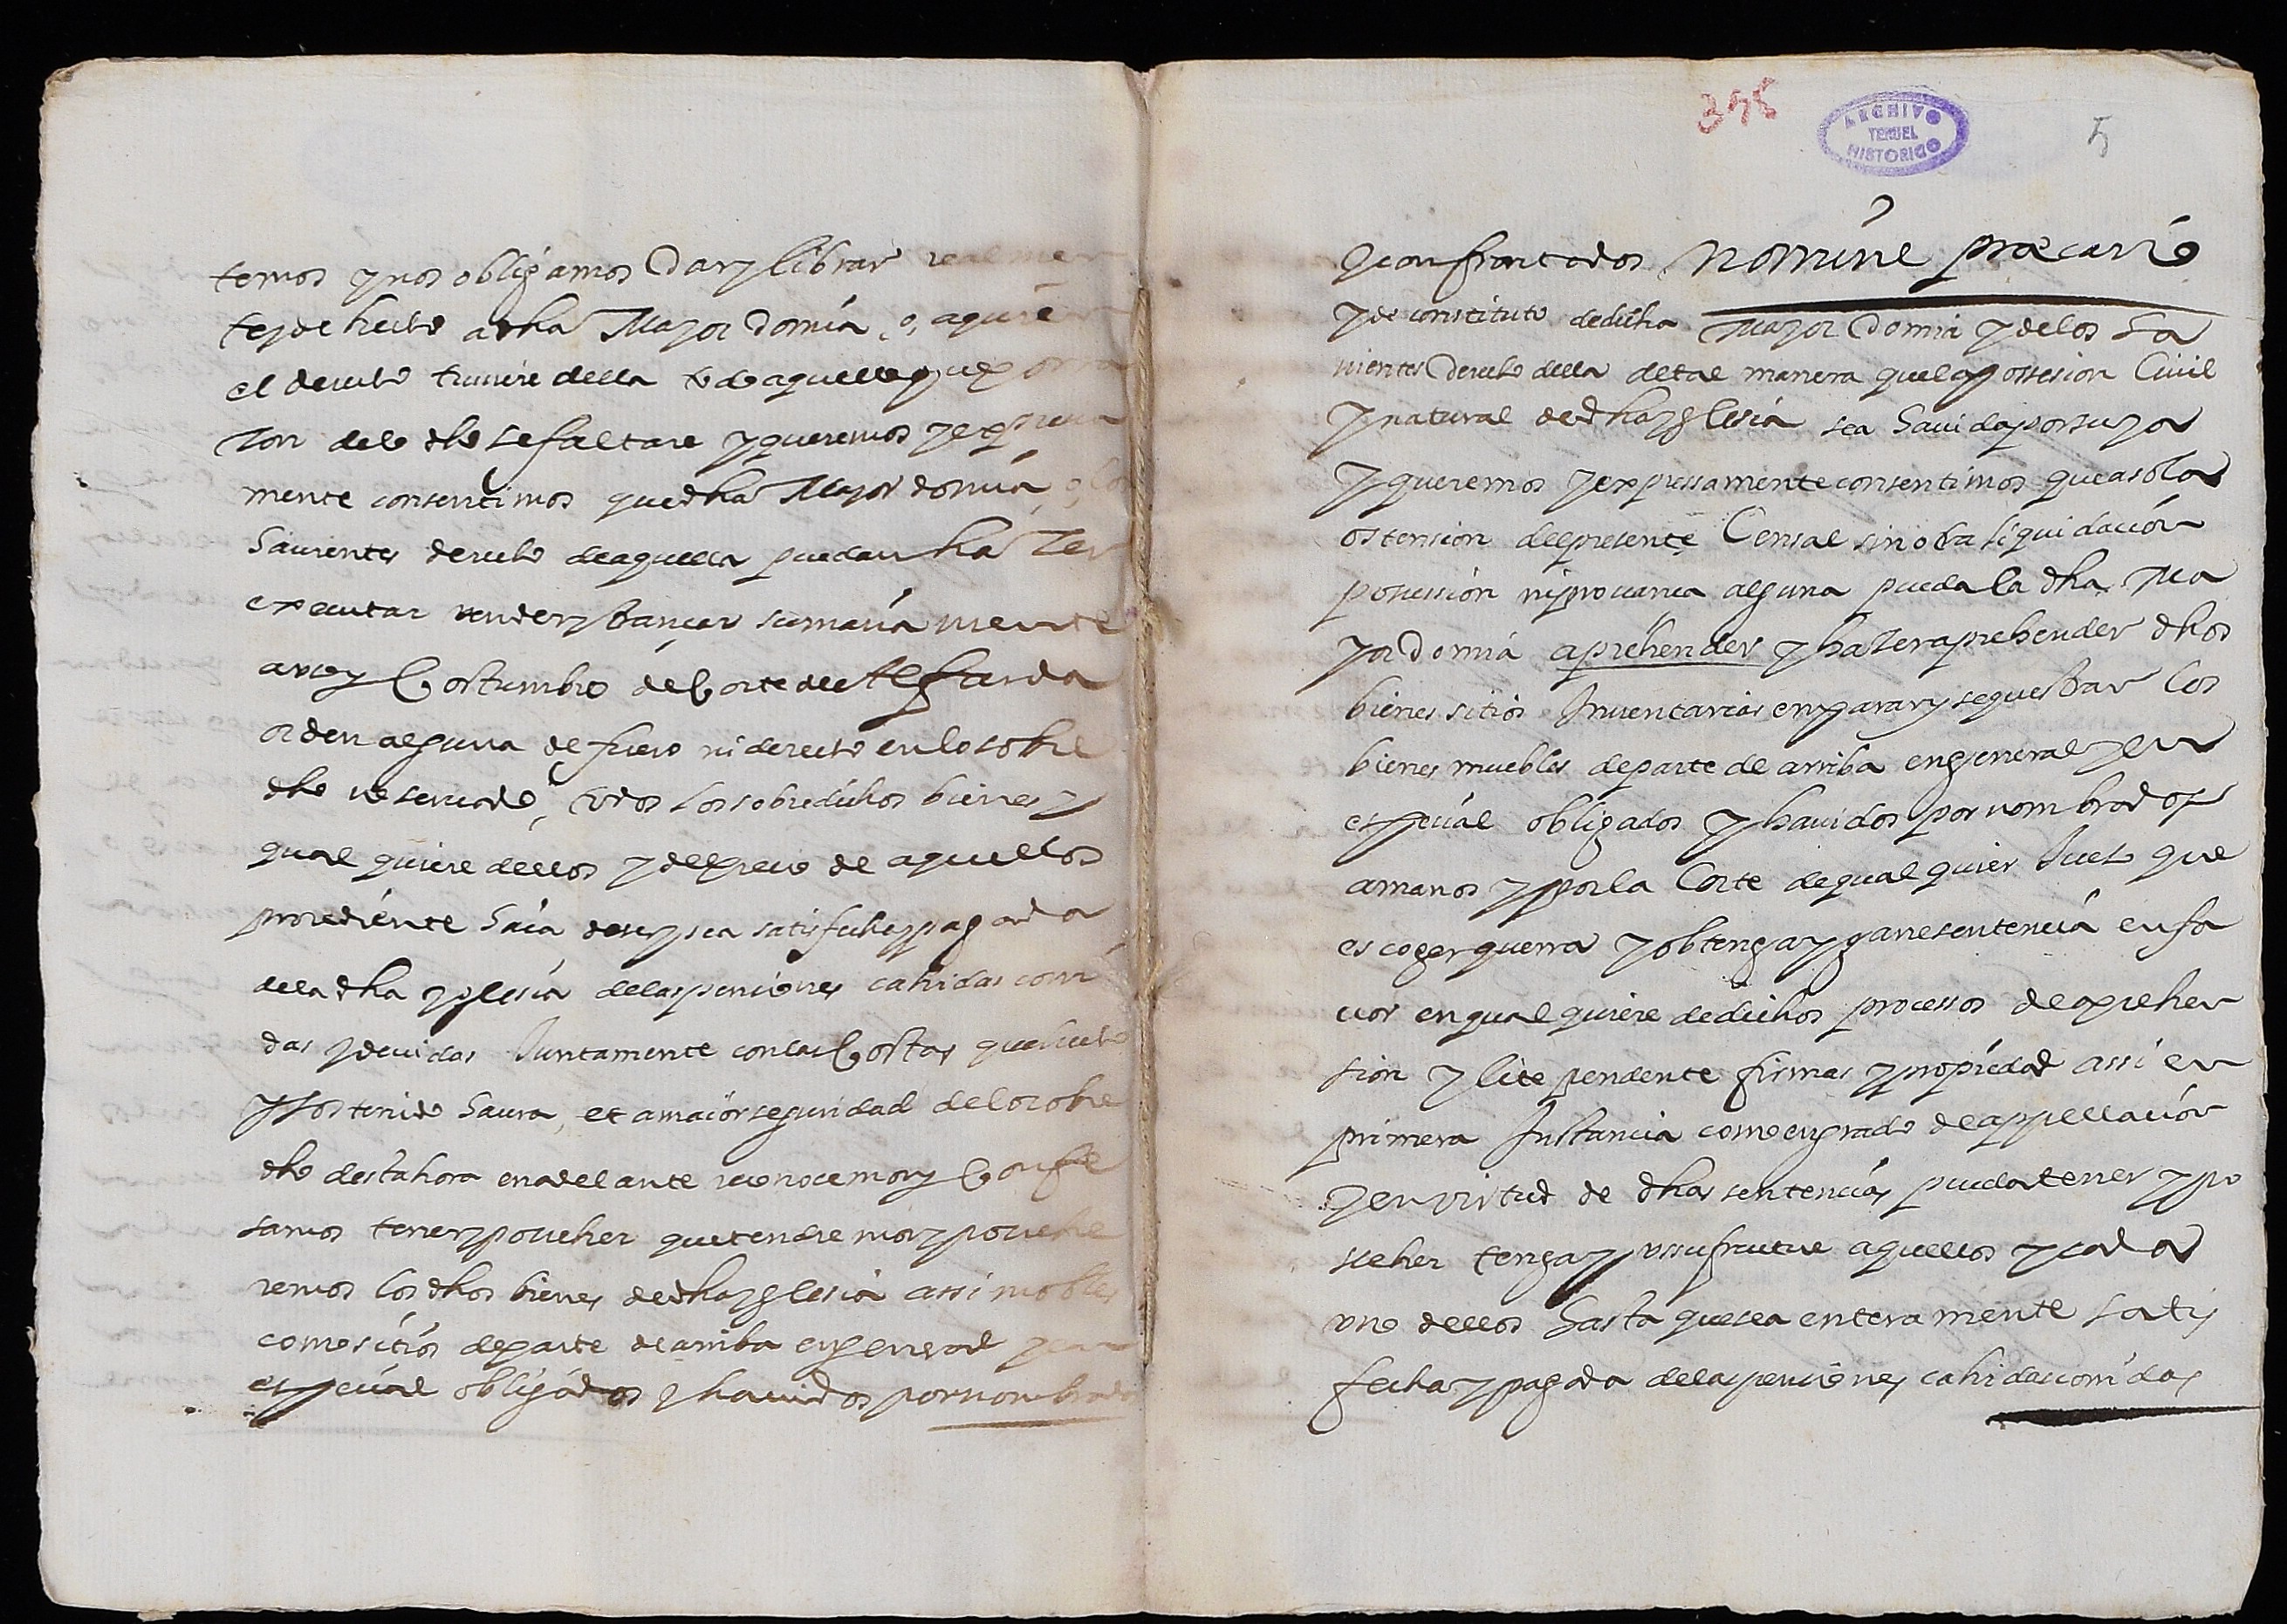 temos y nos obligamos Dar y librar realmen
te y de hecho a dha Mayor Domia, o, a quien
el derecho tuviere della todo aquello que por ra
zon delo dho se faltare y queremos y expressa
mente consentimos que dha Mayordomia, o, los
hauientes derecho de aquella puedan hazer
executar vender y trançar sumariamente
a vso y Costumbre de Corte de Alfarda
orden alguna de fuero ni derecho en lo sobre
dho no seruado, todos los sobredichos bienes y
qual quiere dellos y del precio de aquellos
procediente haia de ser y sea satisfecha y pagada
de la dha yglesia delas pensiones cahidas corri
das y deuidas Juntamente con las Costas que hecho
y sostenido haura, et a maior seguridad delo sobre
dho desta hora en adelante reconocemos y Confe
samos tener y posseher que tendremos y possehe
remos los dhos bienes de dha yglesia assi mobles
como sitios de parte de arriba en general y en
especial obligados y hauidos por nombrados
395
ARCHIVO
TERUEL
HISTORICO
5
y confrontados Nomine precario
y de constituto de dicha Mayor Domia y delos ha
uientes Derecho della de tal manera que la possesion Ciuil
y natural de dha yglesia sea hauida por suya
y queremos y expressamente consentimos que a sola
ostension del presente Censal sin otra liquidacion
possession ni prouanca alguna pueda la dha Ma
yor Domia aprehender y hazer aprehender dhos
bienes sitios Inuentariar emparar y sequestrar los
bienes muebles de parte de arriba en general y en
especial obligados y hauidos por nombrados
a manos y por la Corte de qual quier Juez que
escoger querra y obtenga y gane sentencia en fa
uor en qual quiere de dichos processos de aprehen
sion y lite pendente firmas y propiedad assi en
primera Instancia como en grado de appellacion
y en virtud de dhas sentencias pueda tener y po
sseher tenga y vssufructue aquellos y cada
vno dellos hasta que sea enteramente satis
fecha y pagada delas pensiones cahidas corridas